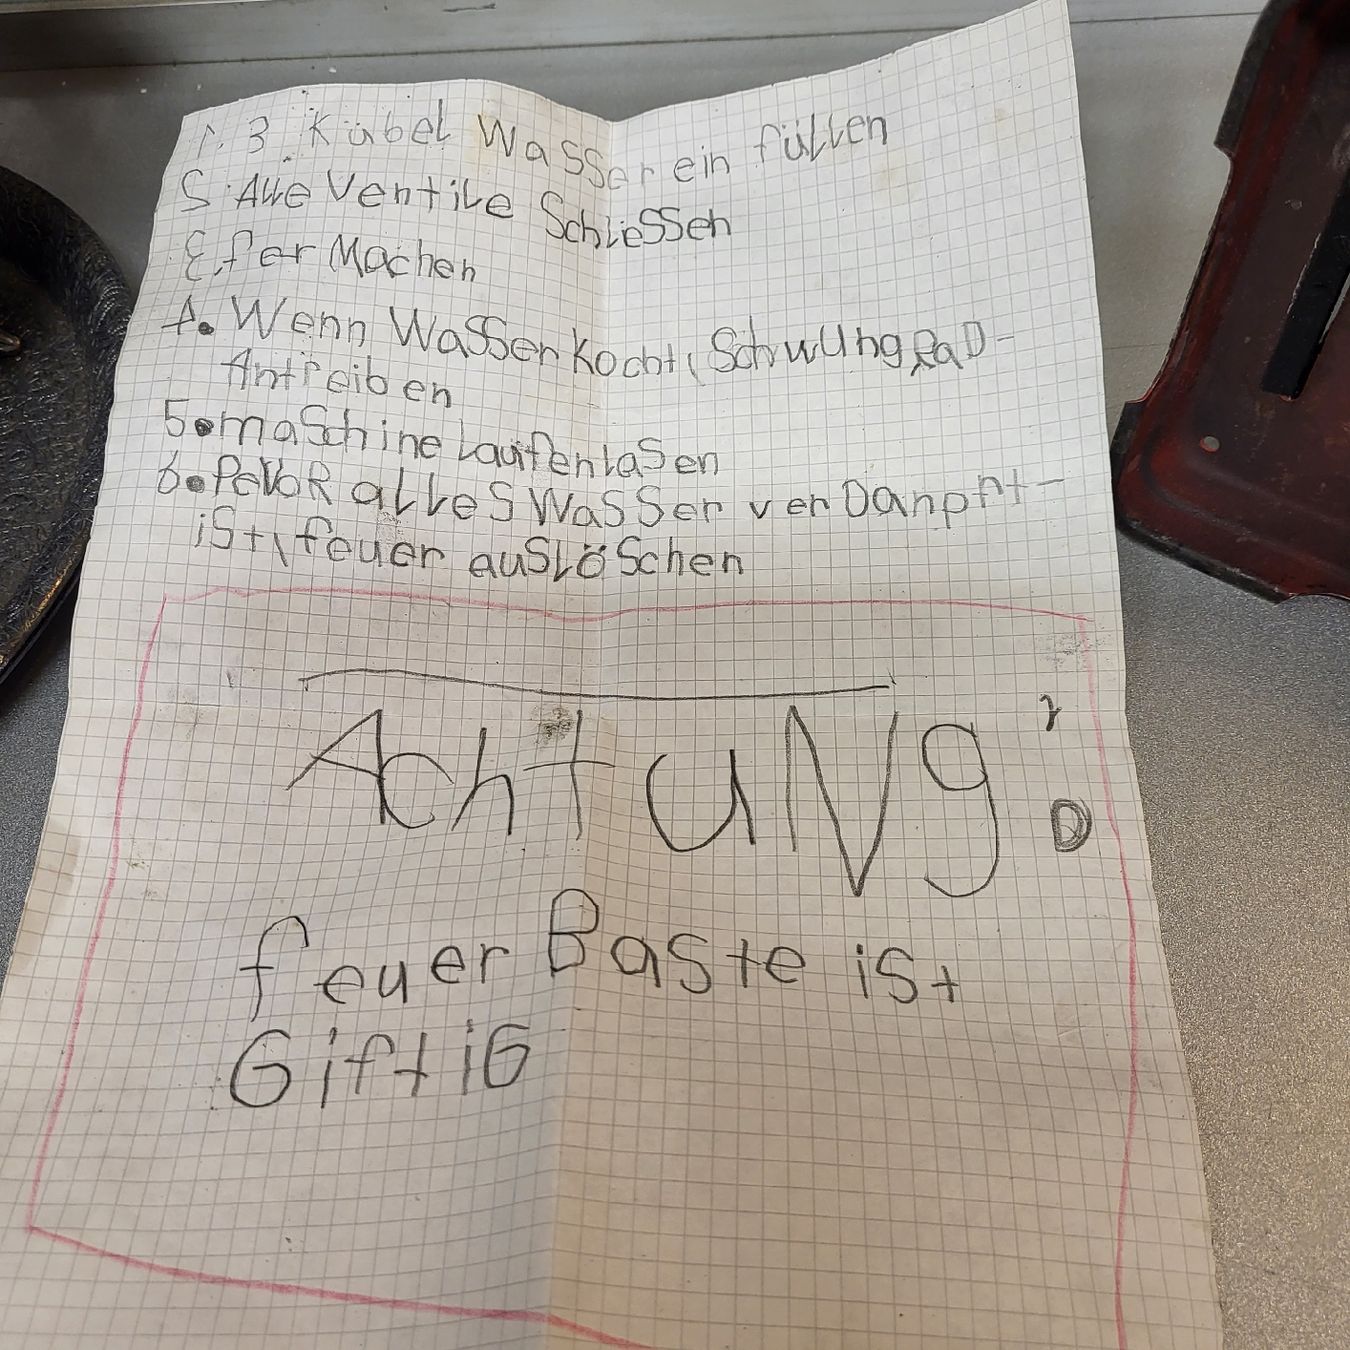 1. 3 Kübel Wasser ein füllen
2. Alle Ventile Schliessen
3. fer Machen
4. Wenn Wasser Kocht, SchwUngRaD-
Antreiben
5. maschine Laufenlasen
6. PeVoR alles Wasser verDanpht-
ist, feuer auslöschen
AchtUNg!
feuer Baste ist
GiftiG